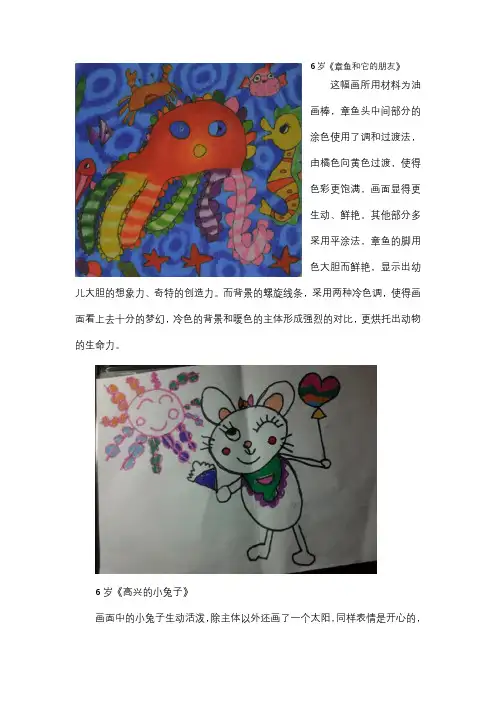 6岁《章鱼和它的朋友》
这幅画所用材料为油
画棒，章鱼头中间部分的
涂色使用了调和过渡法，
由橘色向黄色过渡，使得
色彩更饱满，画面显得更
生动、鲜艳。其他部分多
采用平涂法，章鱼的脚用
色大胆而鲜艳，显示出幼
儿大胆的想象力、奇特的创造力。而背景的螺旋线条，采用两种冷色调，使得画
面看上去十分的梦幻，冷色的背景和暖色的主体形成强烈的对比，更烘托出动物
的生命力。
6岁《高兴的小兔子》
画面中的小兔子生动活泼，除主体以外还画了一个太阳，同样表情是开心的，